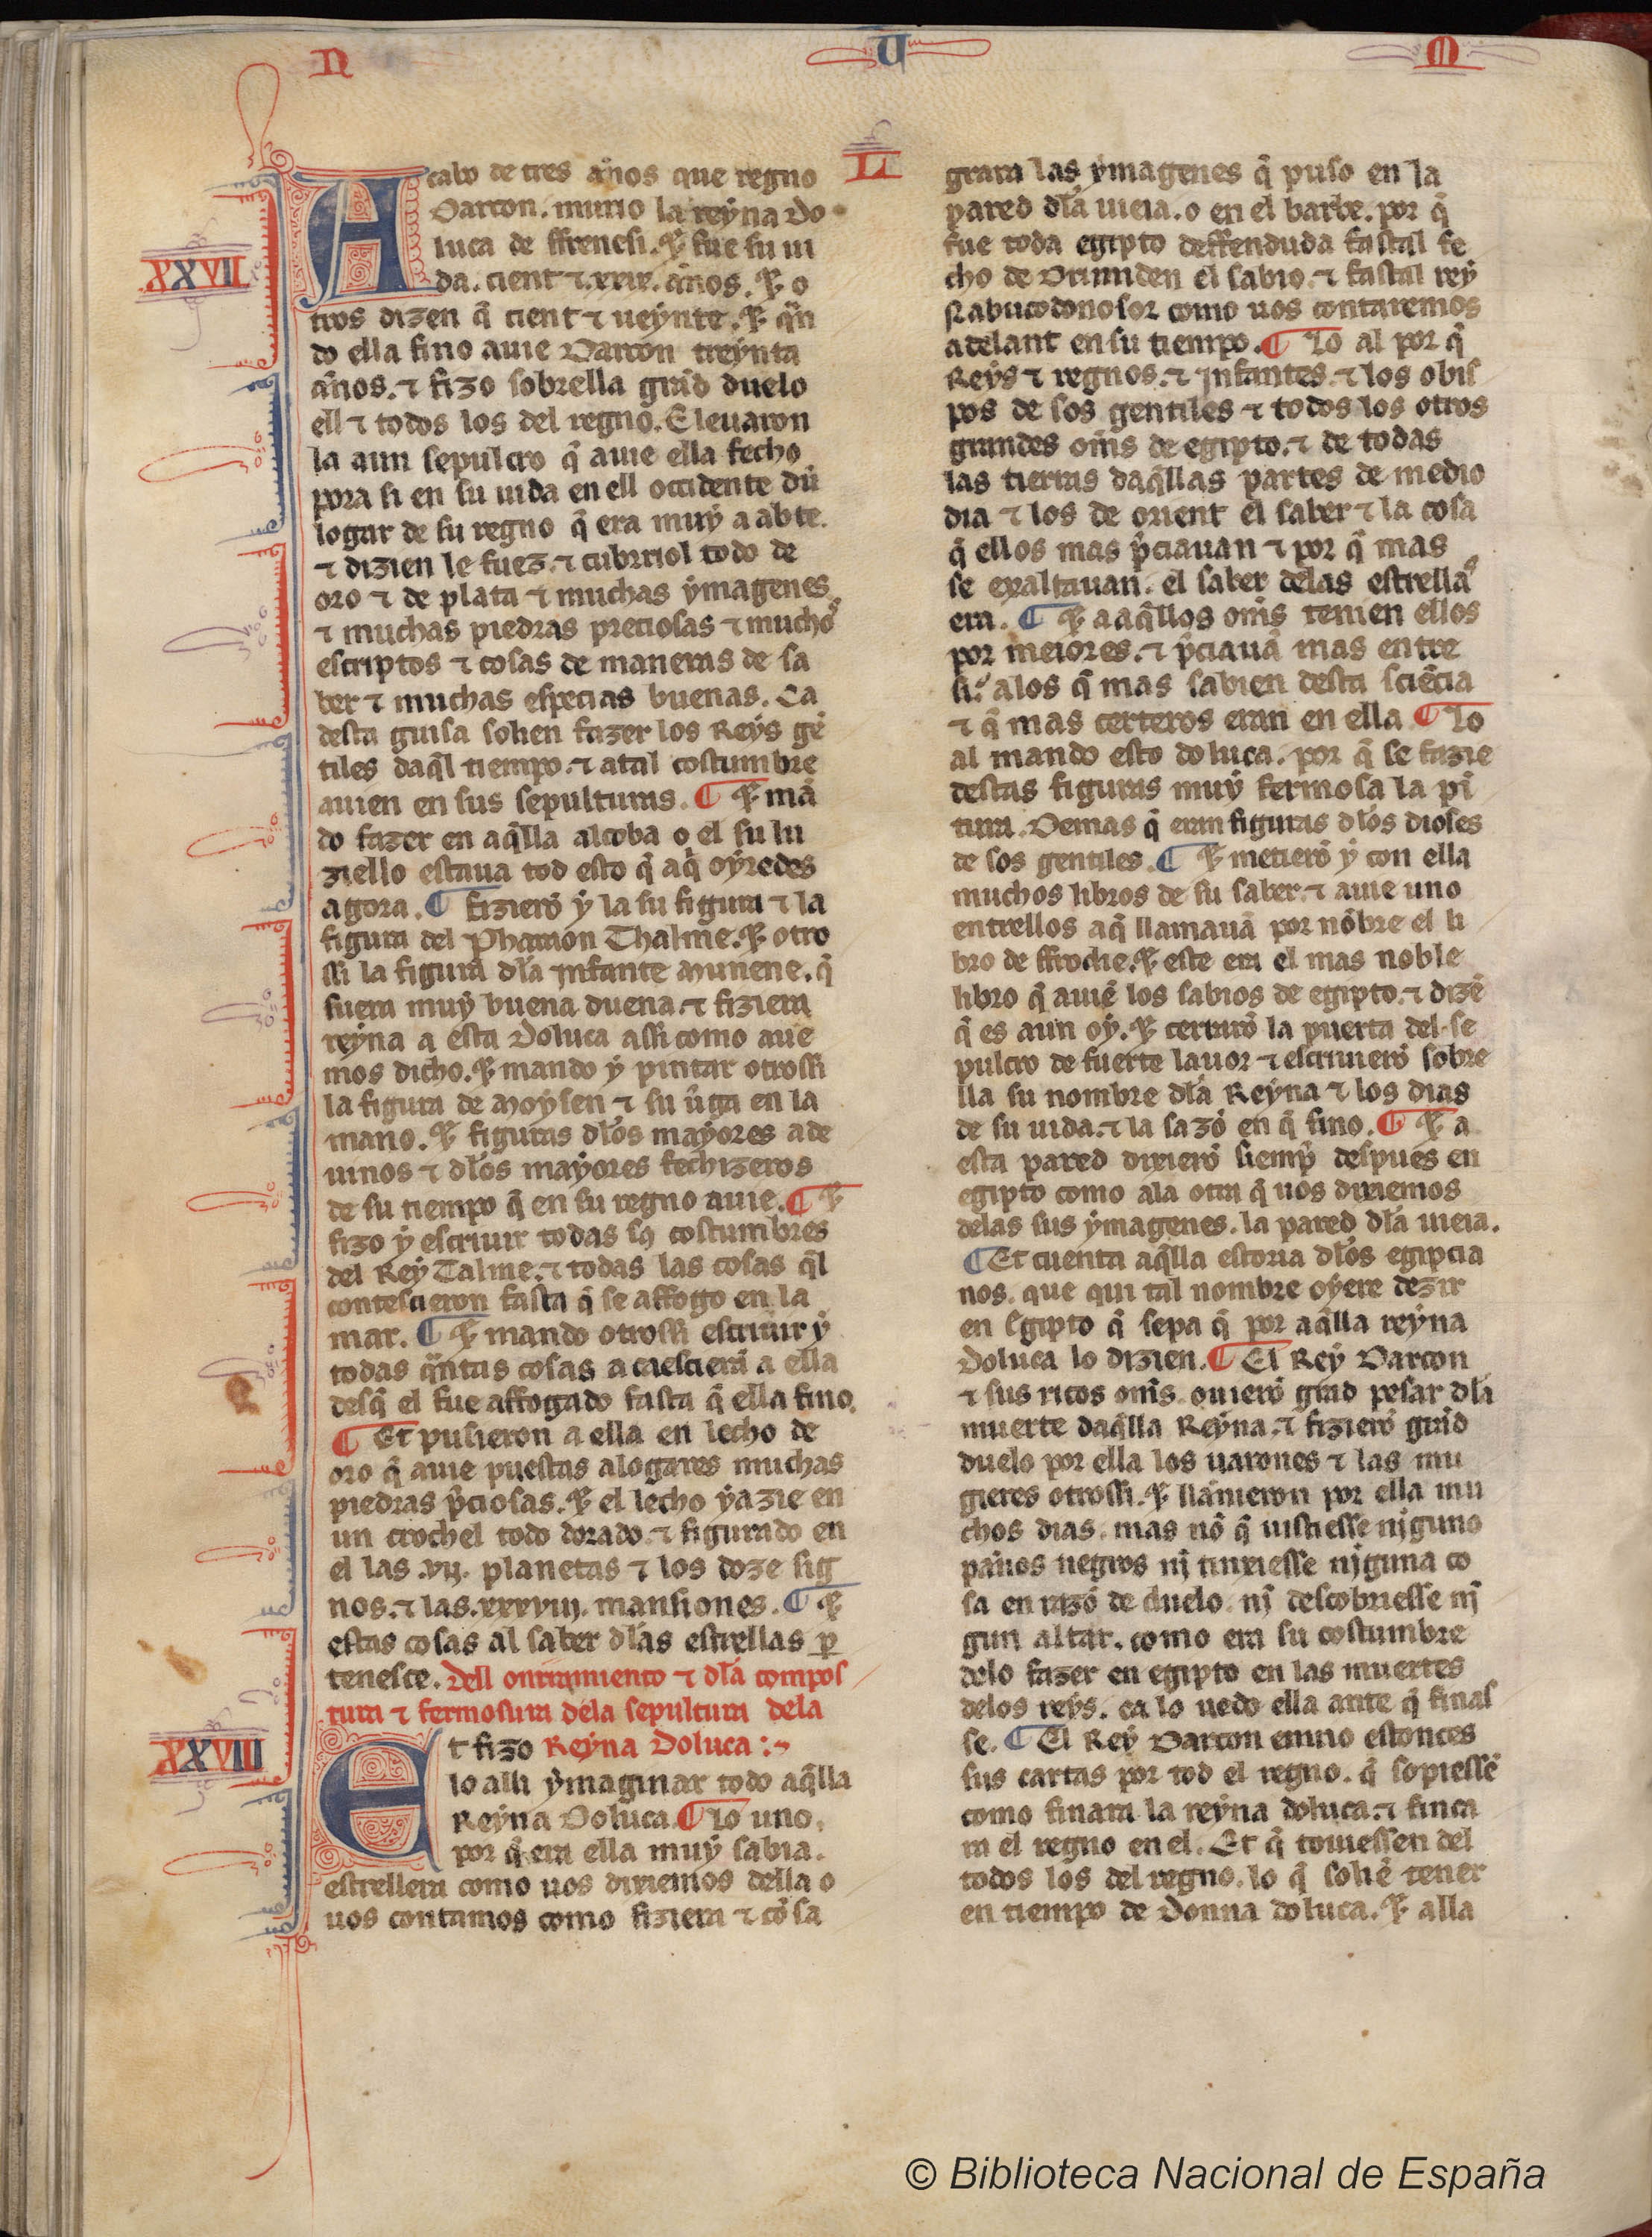 N U M
LI
XXVII
Acabo de tres años que regno
Darcon. murio la reẏna Do
luca de ffrenesi. ⁊ fue su ui
da. cient ⁊ .xxix. años. ⁊ o
tros dizen q̄ cient ⁊ ueẏnte. ⁊ qn̄
do ella fino auie Darcon treẏnta
años. ⁊ fizo sobrella grād duelo
ell ⁊ todos los del regno. E leuaron
la aun sepulcro q̄ auie ella fecho
pora si en su uida en ell occidente dū
logar de su regno q̄ era muẏ aabte.
⁊ dizien le fuez. ⁊ cubriol todo de
oro ⁊ de plata ⁊ muchas ẏmagenes
⁊ muchas piedras preciosas ⁊ muchos
escriptos ⁊ cosas de maneras de sa
ber ⁊ muchas especias buenas. Ca
desta guisa solien fazer los Reẏs gē
tiles daql̄ tiempo. ⁊ atal costumbre
auien en sus sepulturas. ¶ ⁊ mā
do fazer en aq̄lla alcoba o el su lu
ziello estaua tod esto q̄ aq̄ oẏredes
agora. ¶ fizierō ẏ la su figura ⁊ la
figura del Pharaon Thalme. ⁊ otro
ssi la figura dl̄a Jnfante Munene. q̄
fuera muẏ buena duena. ⁊ fiziera
reẏna a esta Doluca assi como aue
mos dicho. ⁊ mando ẏ pintar otrossi
la figura de Moẏsen ⁊ su ūga en la
mano. ⁊ figuras dl̄os maẏores ade
uinos ⁊ dl̄os maẏores fechizeros
de su tiempo q̄ en su regno auie. ¶ ⁊
fizo ẏ escriuir todas sꝯ costumbres
del Reẏ Talme. ⁊ todas las cosas ql̄
contescieron fasta q̄ se affogo en la
mar. ¶ ⁊ mando otrossi escriuir ẏ
todas qn̄tas cosas acaescierā a ella
desq̄ el fue affogado fasta q̄ ella fino.
¶ Et pusieron a ella en lecho de
oro q̄ auie puestas alogares muchas
piedras p̄ciosas. ⁊ el lecho ẏazie en
un crochel todo dorado. ⁊ figurado en
el las .vij. planetas ⁊ los doze sig
nos. ⁊ las .xxxviij. mansiones. ¶ ⁊
estas cosas al saber dl̄as estrellas ꝑ
tenesce. Dell onrramiento ⁊ dl̄a compos
tura ⁊ fermosura dela sepultura dela
XXVIII
Et fizo Reẏna Doluca :~
lo alli ẏmaginar todo aq̄lla
Reẏna Doluca. ¶ Lo uno.
por q̄ era ella muẏ sabia.
estrellera como uos diriemos della o
uos contamos como fiziera ⁊ cōsa
grara las ẏmagenes q̄ puso en la
pared dl̄a uieia. o en el barbe. por q̄
fue toda egipto deffenduda fastal fe
cho de Drimiden el sabio. ⁊ fastal reẏ
Nabucodonosor como uos contaremos
adelant en su tiempo. ¶ Lo al por q̄
Reẏs ⁊ regnos. ⁊ Jnfantes. ⁊ los obis
pos de sos gentiles ⁊ todos los otros
grandes om̄s de egipto. ⁊ de todas
las tierras daq̄llas partes de medio
dia ⁊ los de orient el saber ⁊ la cosa
q̄ ellos mas p̄ciauan ⁊ por q̄ mas
se exaltauan. el saber delas estrellas
era. ¶ ⁊ a aq̄llos om̄s tenien ellos
por meiores. ⁊ p̄ciauā mas entre
si. alos q̄ mas sabien desta sciēcia
⁊ q̄ mas certeros eran en ella ¶ Lo
al mando esto doluca. por q̄ se fazie
destas figuras muẏ fermosa la pī
tura. Demas q̄ eran figuras dl̄os dioses
de sos gentiles. ¶ ⁊ metierō ẏ con ella
muchos libros de su saber. ⁊ auie uno
entrellos aq̄ llamauā por nōbre el li
bro de ffroche. ⁊ este era el mas noble
libro q̄ auiē los sabios de egipto. ⁊ dizē
q̄ es aun oẏ. ⁊ cerrarō la puerta del se
pulcro de fuerte lauor ⁊ escriuierō sobre
lla su nombre dl̄a Reẏna ⁊ los dias
de su uida. ⁊ la sazō en q̄ fino. ¶ ⁊ a
esta pared dixierō siemp̄ despues en
egipto como ala otra q̄ uos diriemos
delas sus ẏmagenes. la pared dl̄a uieia.
¶ Et cuenta aq̄lla estoria dl̄os egipcia
nos. que qui tal nombre oẏere dezir
en Egipto q̄ sepa q̄ por aq̄lla reẏna
Doluca lo dizien. ¶ El Reẏ Darcon
⁊ sus ricos om̄s. ouierō grād pesar dl̄a
muerte daq̄lla Reẏna. ⁊ fizierō grād
duelo por ella los uarones ⁊ las mu
gieres otrossi. ⁊ llānieron por ella mu
chos dias. mas nō q̄ uistiesse nīguno
paños negros nī tinxiesse nīguna co
sa en razō de duelo. nī descobriesse nī
gun altar. como era su costumbre
delo fazer en egipto en las muertes
delos reẏs. ca lo uedo ella ante q̄ finas
se. ¶ El Reẏ Darcon enuio estonces
sus cartas por tod el regno. q̄ sopiessē
como finara la reẏna doluca. ⁊ finca
ra el regno en el. Et q̄ touiessen del
todos los del regno. lo q̄ soliē tener
en tiempo de Donna doluca. ⁊ alla
© Biblioteca Nacional de España